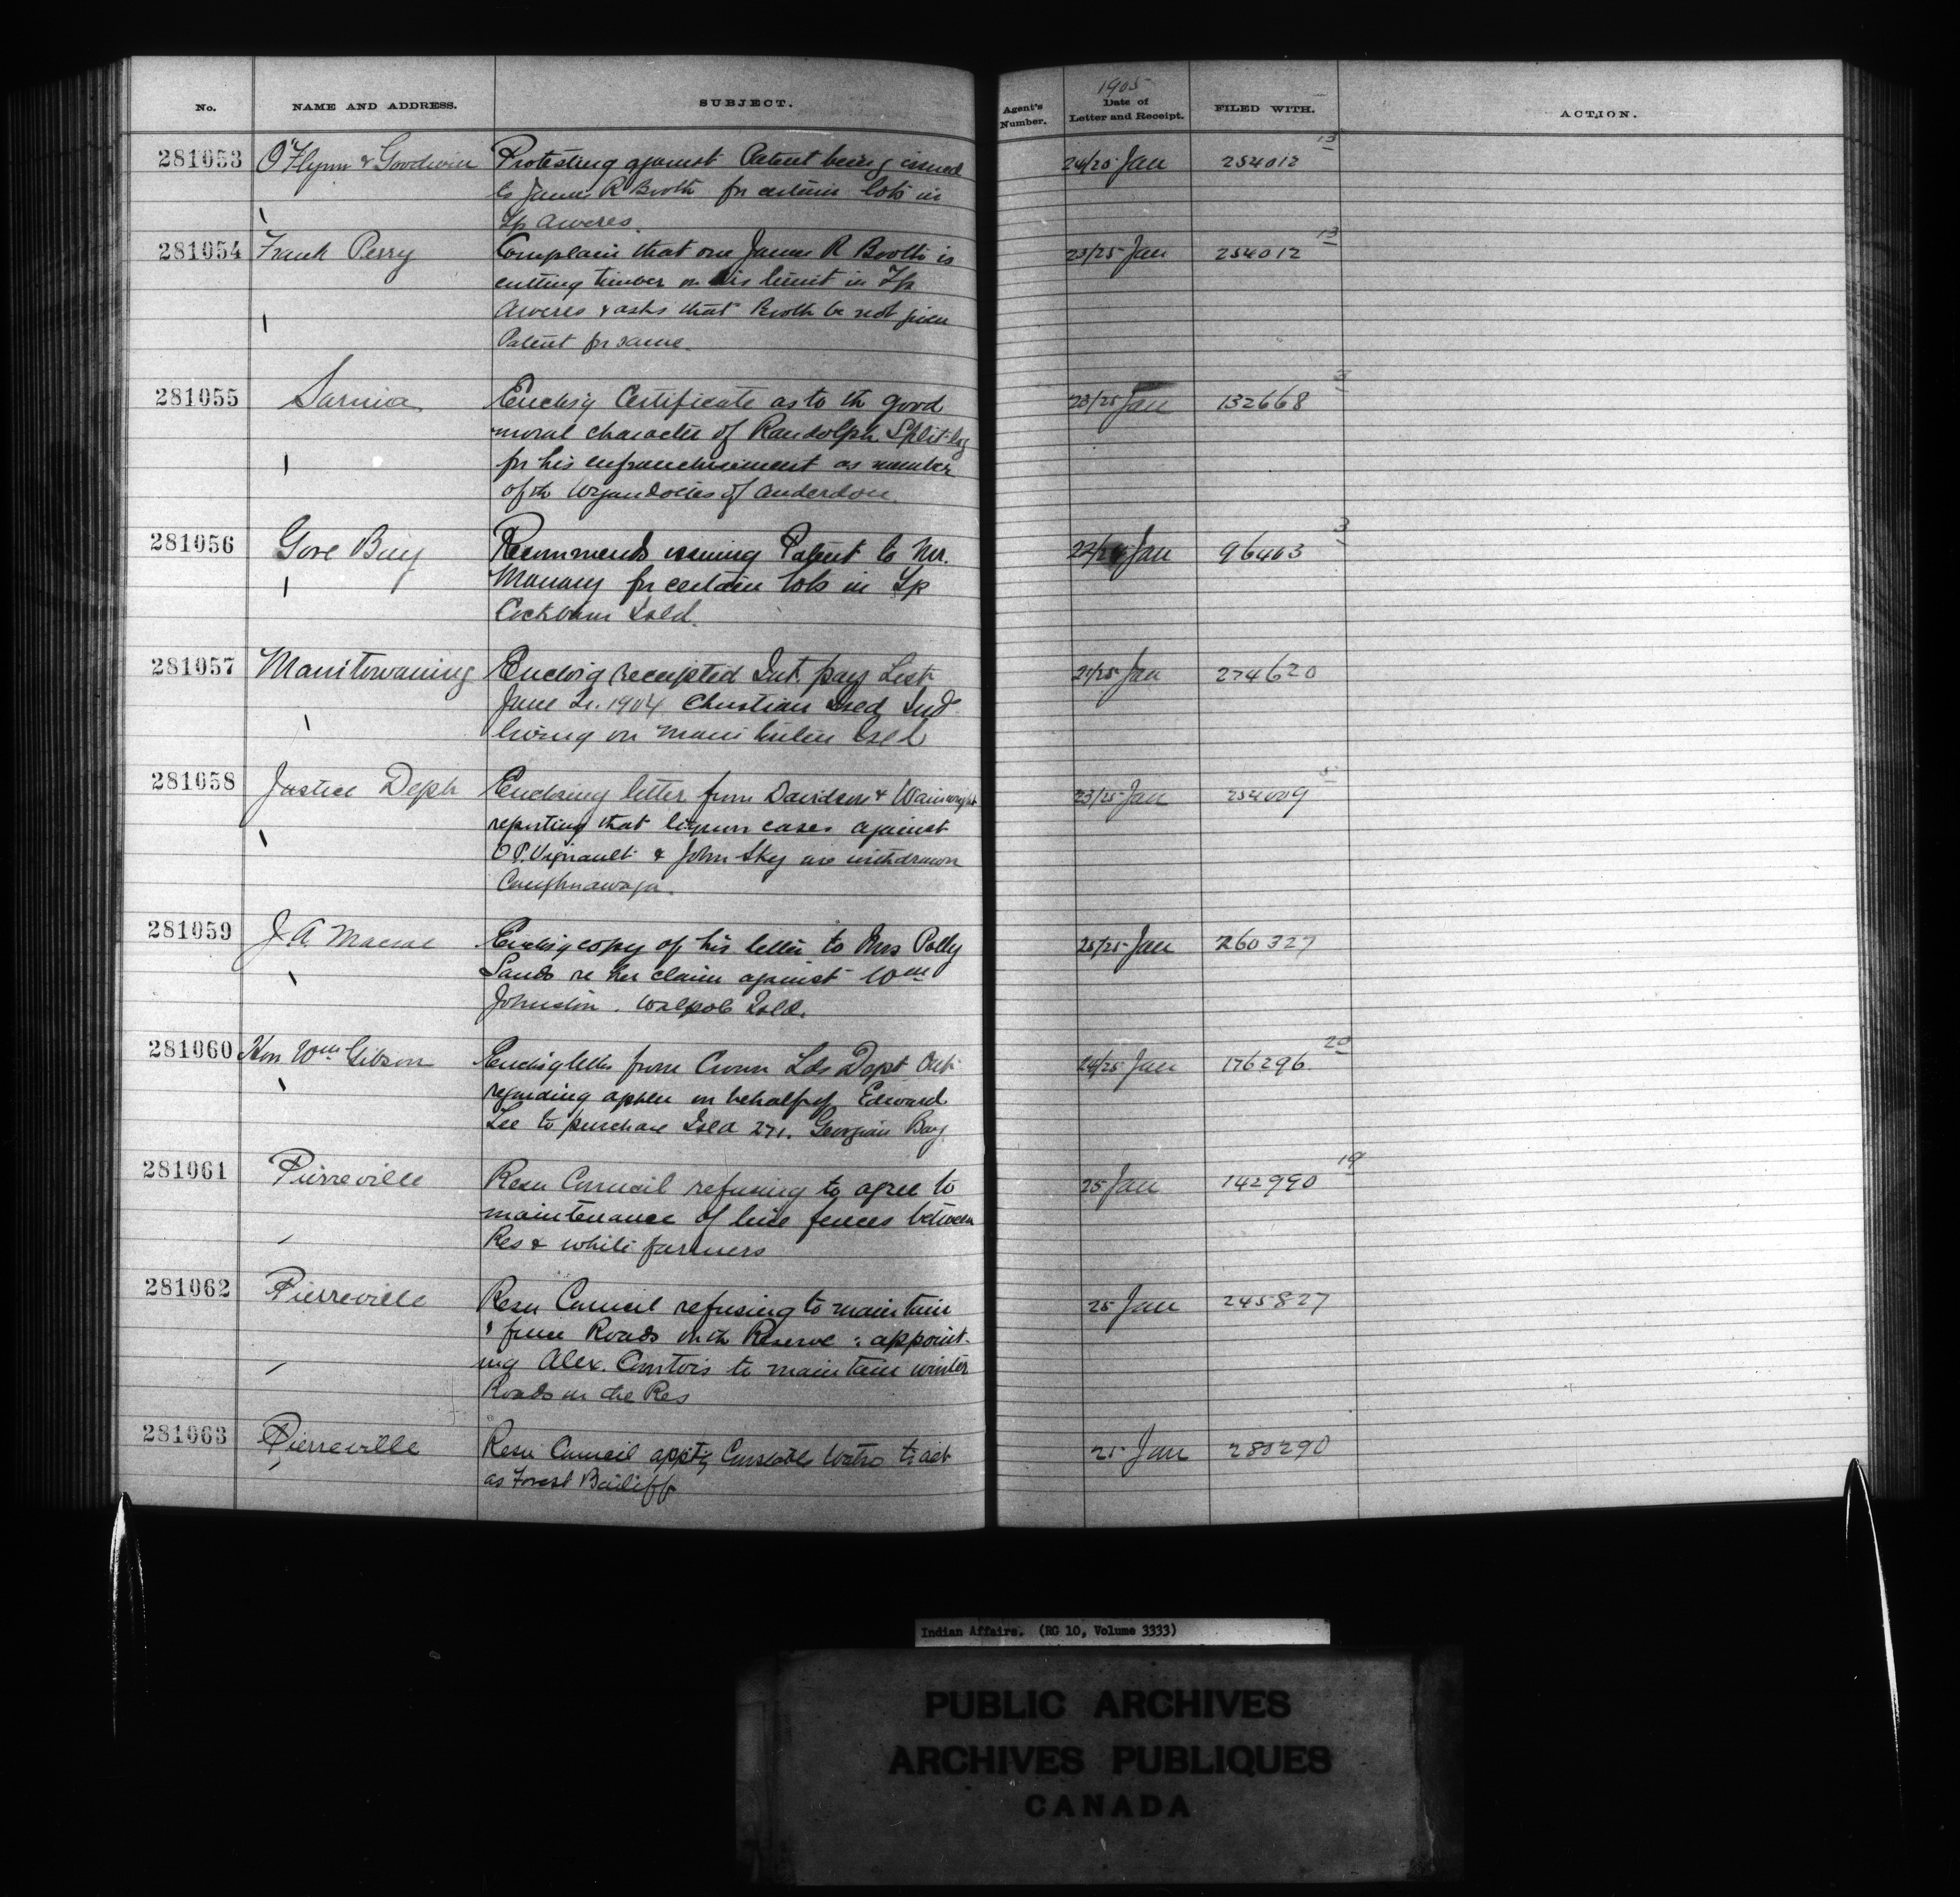 No. NAME AND ADDRESS. SUBJECT. Agent's Number. 1905 Date of Letter and Receipt. FILED WITH. ACTION.
281053 O'Flynn & Goodwin Protesting against Patent being issued 24/25 Jan 254012 13
to James R Booth for certain lots in
Tp Aweres.
281054 Frank Perry Complain that one James R Booth is 23/25 Jan 254012 13
cutting timber on his limit in Tp
Aweres & asks that Booth be not given
Patent for same.
281055 Sarnia Enclosg Certificate as to th good 23/25 Jan 132668 3
moral character of Randolph Split-log
for his enfranchisement as member
of th Wyandottes of Anderdon.
281056 Gore Bay Recommends issuing Patent to Mr. 22/24 Jan 96403 3
Manary for certain lots in Tp
Cockburn Isld.
281057 Manitowaning Enclosg receipted Int. pay List 21/25 Jan 274620
June Qr. 1904 Christian Isld Ind
living on Manitoulin Isld
281058 Justice Deph Enclosing letter from Davidson & Wainwright 23/25 Jan 254009 5
reporting that liquor cases against
O P. Vignault & John Sky are withdrawn
Caughnawaga.
281059 J A Macrae Enclosg copy of his letter to Mrs Polly 25/25 Jan 260327
Sands re her claim against Wm
Johnston. Walpole Isld.
281060 Hon Wm Gibson Enclosg letter from Crown Lds Dept Ont 24/25 Jan 176296 20
regarding appln on behalf of Edward
Lee to purchase Isld 271. Georgian Bay
281061 Pierreville Resn Council refusing to agree to 25 Jan 142990 19
maintenance of line fences between
Res & white farmers
281062 Pierreville Resn Council refusing to maintain 25 Jan 245827
& fence Roads on th Reserve : appoint-
ing Alex. Comtois to maintain winter
Roads on the Res
281063 Pierreville Resn Council apptg Constable Watso to act 25 Jan 280290
as Forest Bailiff
Indian Affairs. (RG 10, Volume 3333)
PUBLIC ARCHIVES
ARCHIVES PUBLIQUES
CANADA